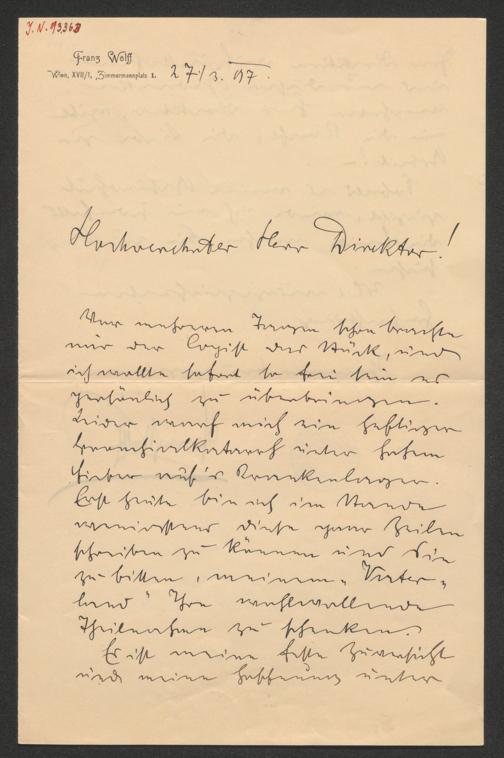 J. N. 93363
Franz Wolff
Wien, XVII/1, Zimmermannplatz 1.
27./3. 97.
Hochverehrter Herr Direktor!
Vor mehreren Tagen schon brachte
mir der Copist das Stück, und
ich wollte sofort so frei sein es
persönlich zu überbringen.
Leider warf mich ein heftiger
Bronchialkatarrh unter hohem
Fieber auf's Krankenlager.
Erst heute bin ich im Stande
wenigstens diese paar Zeilen
schreiben zu können und Sie
zu bitten, meinem „Vater-
land" Ihre wohlwollende
Theilnahme zu schenken.
Es ist meine feste Zuversicht
und meine Hoffnung unter